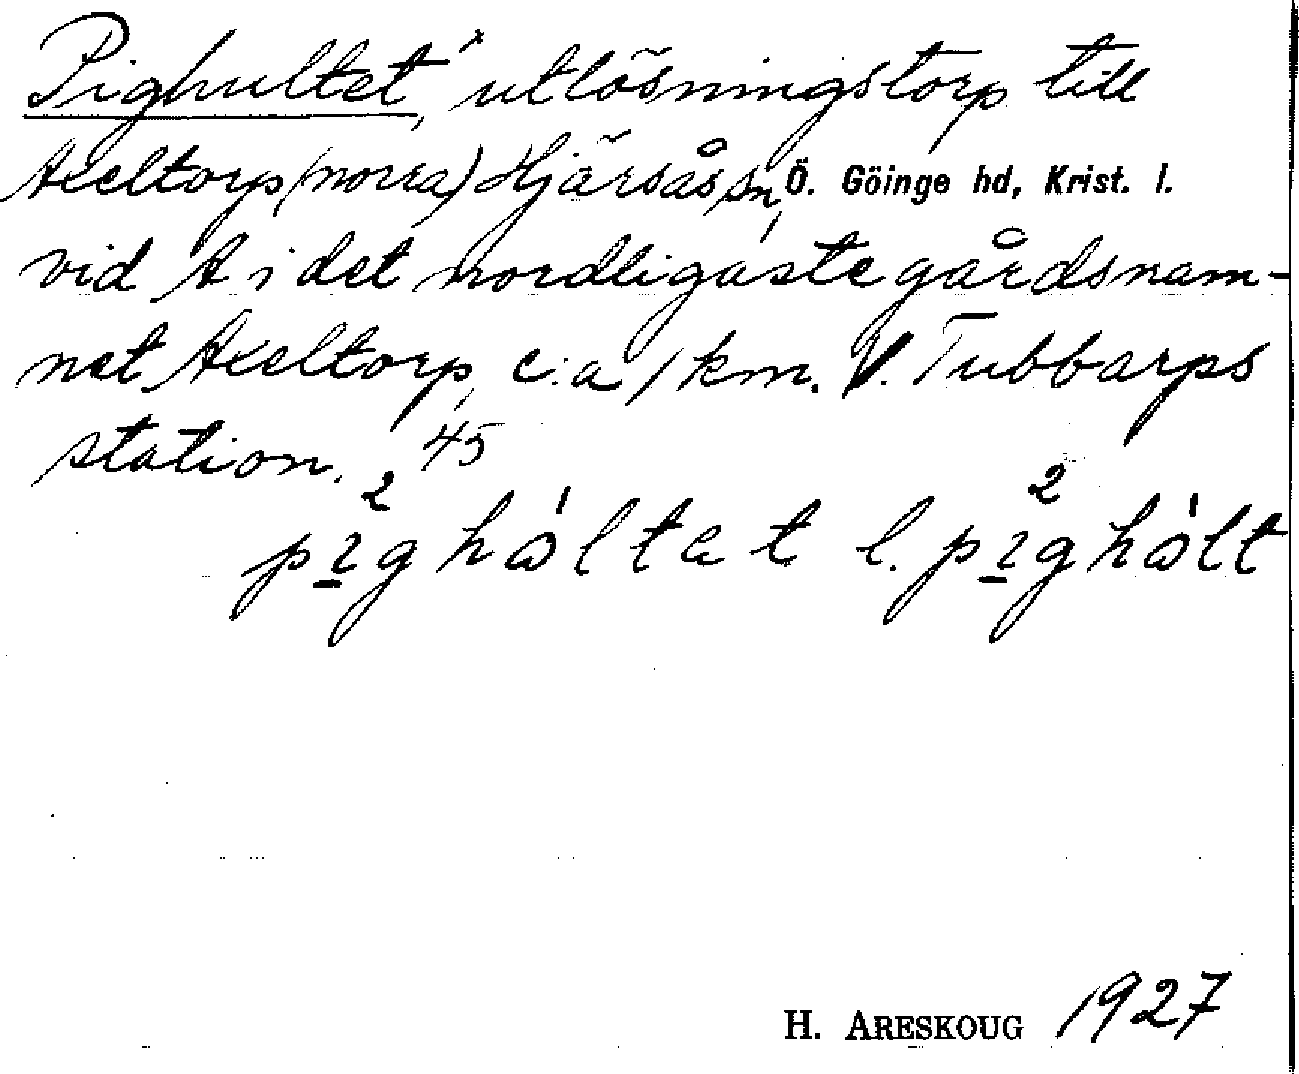 Pighultet,× utlösningstorp till
Axeltorp (norra) Hjärsås sn, Ö. Göinge hd, Krist. l.
vid A i det nordligaste gårdsnam-
net Axeltorp, c:a 1 km. V. Tubbarps
station. 45
pi²ghåltet l. pi²ghålt
H. ARESKOUG 1927